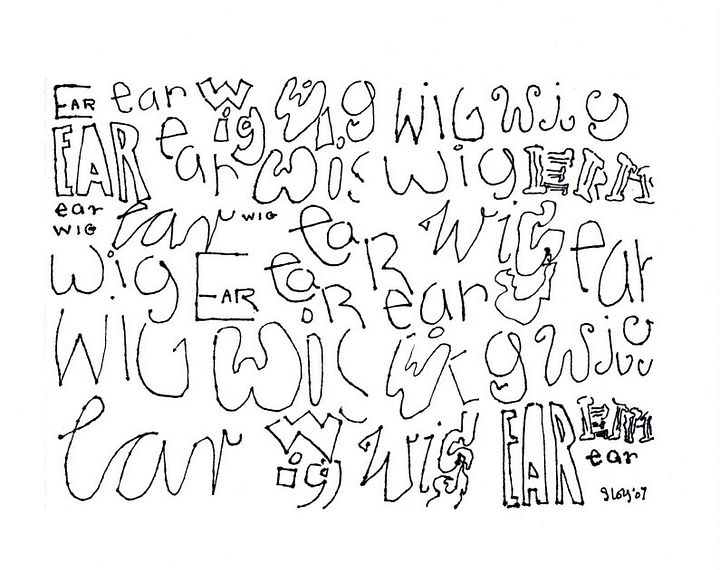 EAR ear Wig Wig WIG Wig
EAR ear Wig Wig
ear ear WIG eaR WIG
WIG
Wig EAR eaiR ear ear
WIG WiG g Wig
ear Wig Wig EAR
ear